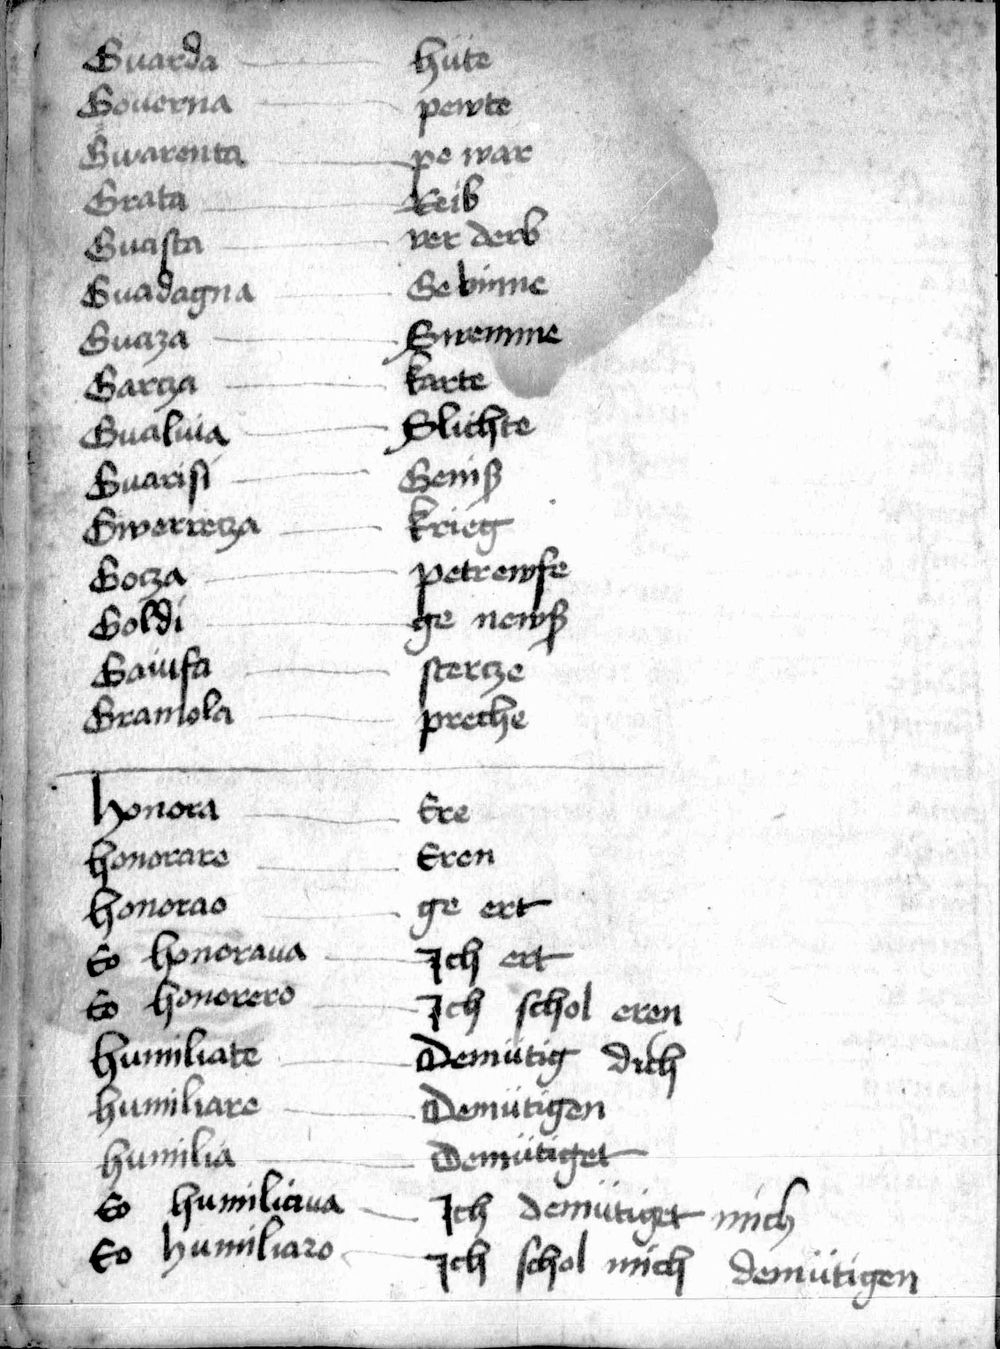 Guarda hüte
Gouerna pewte
Gwarenta pe war
Grata Reib
Guasta ver derb
Guadagna Gebinne
Guaza Swemme
Garcza karte
Gualiua Slichte
Guarisi Geniß
Gwerrecza krieg
Gocza petrewfe
Goldi ge newß
Gaiufa stercze
Gramola preche
honora Ere
honorare Eren
honorao ge ert
Eo honoraua Ich ert
Eo honorero Ich schol eren
humiliate Demütig dich
humiliare Demütigen
humilia Demütiget
Eo humiliaua Ich demütiget mich
Eo humiliaro Ich schol mich demütigen